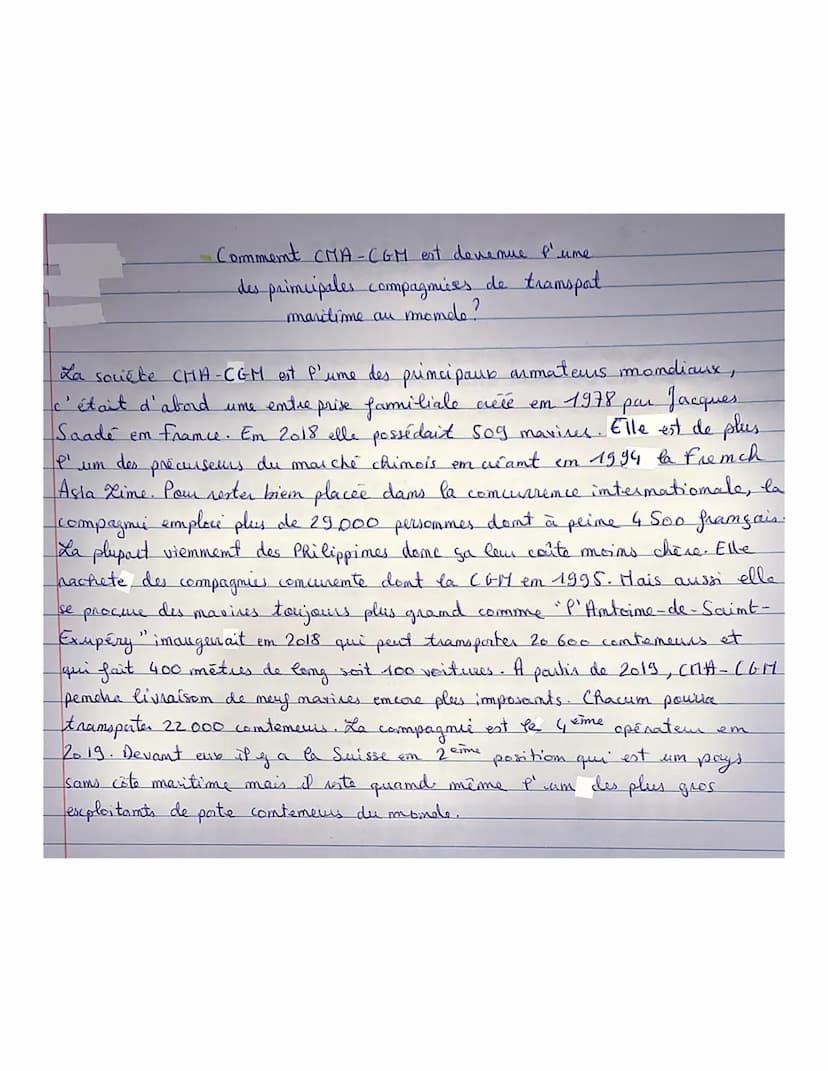 Comment CMA-CGM est devenue l'une
des principales compagnies de transpot
maritime au monde?
La société CMA-CGM est l'une des principaux armateurs mondiaux,
c'était d'abord une entreprise familiale créé en 1978 par Jacques
Saadé en France. En 2018 elle possédait 509 navires. Elle est de plus
l'un des précurseurs du marché chinois en créant en 1994 la French
Asia Line. Pour rester bien placée dans la concurrence internationale, la
compagnie emploie plus de 29 000 personnes dont à peine 4 500 français.
La plupart viennent des Philippines donc ça leur coûte moins chère. Elle
rachete des compagnies concurente dont la CGM en 1995. Mais aussi elle
se procure des navires toujours plus grand comme "l'Antoine-de-Saint-
Exupéry" inaugurait en 2018 qui peut transporter 20 600 conteneurs et
qui fait 400 mètres de long soit 100 voitures. À partir de 2019, CMA-CGM
livraison de neuf navires encore plus imposants. Chacun pourra
transporter 22 000 conteneurs. La compagnie est le 4ème opérateur en
2019. Devant eux il y a la Suisse en 2ème position qui est un pays
sans côte maritime mais il reste quand même l'un des plus gros
exploitants de porte conteneurs du monde.